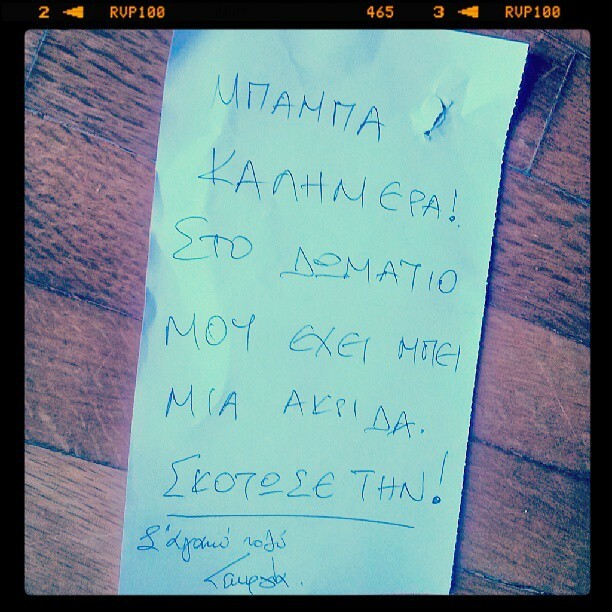 2 ◄ RVP100 465 3 ◄ RVP100
ΜΠΑΜΠΑ
ΚΑΛΗΜΕΡΑ!
ΣΤΟ ΔΩΜΑΤΙΟ
ΜΟΥ ΕΧΕΙ ΜΠΕΙ
ΜΙΑ ΑΚΡΙΔΑ.
ΣΚΟΤΩΣΕ ΤΗΝ!
Σ'αγαπώ πολύ